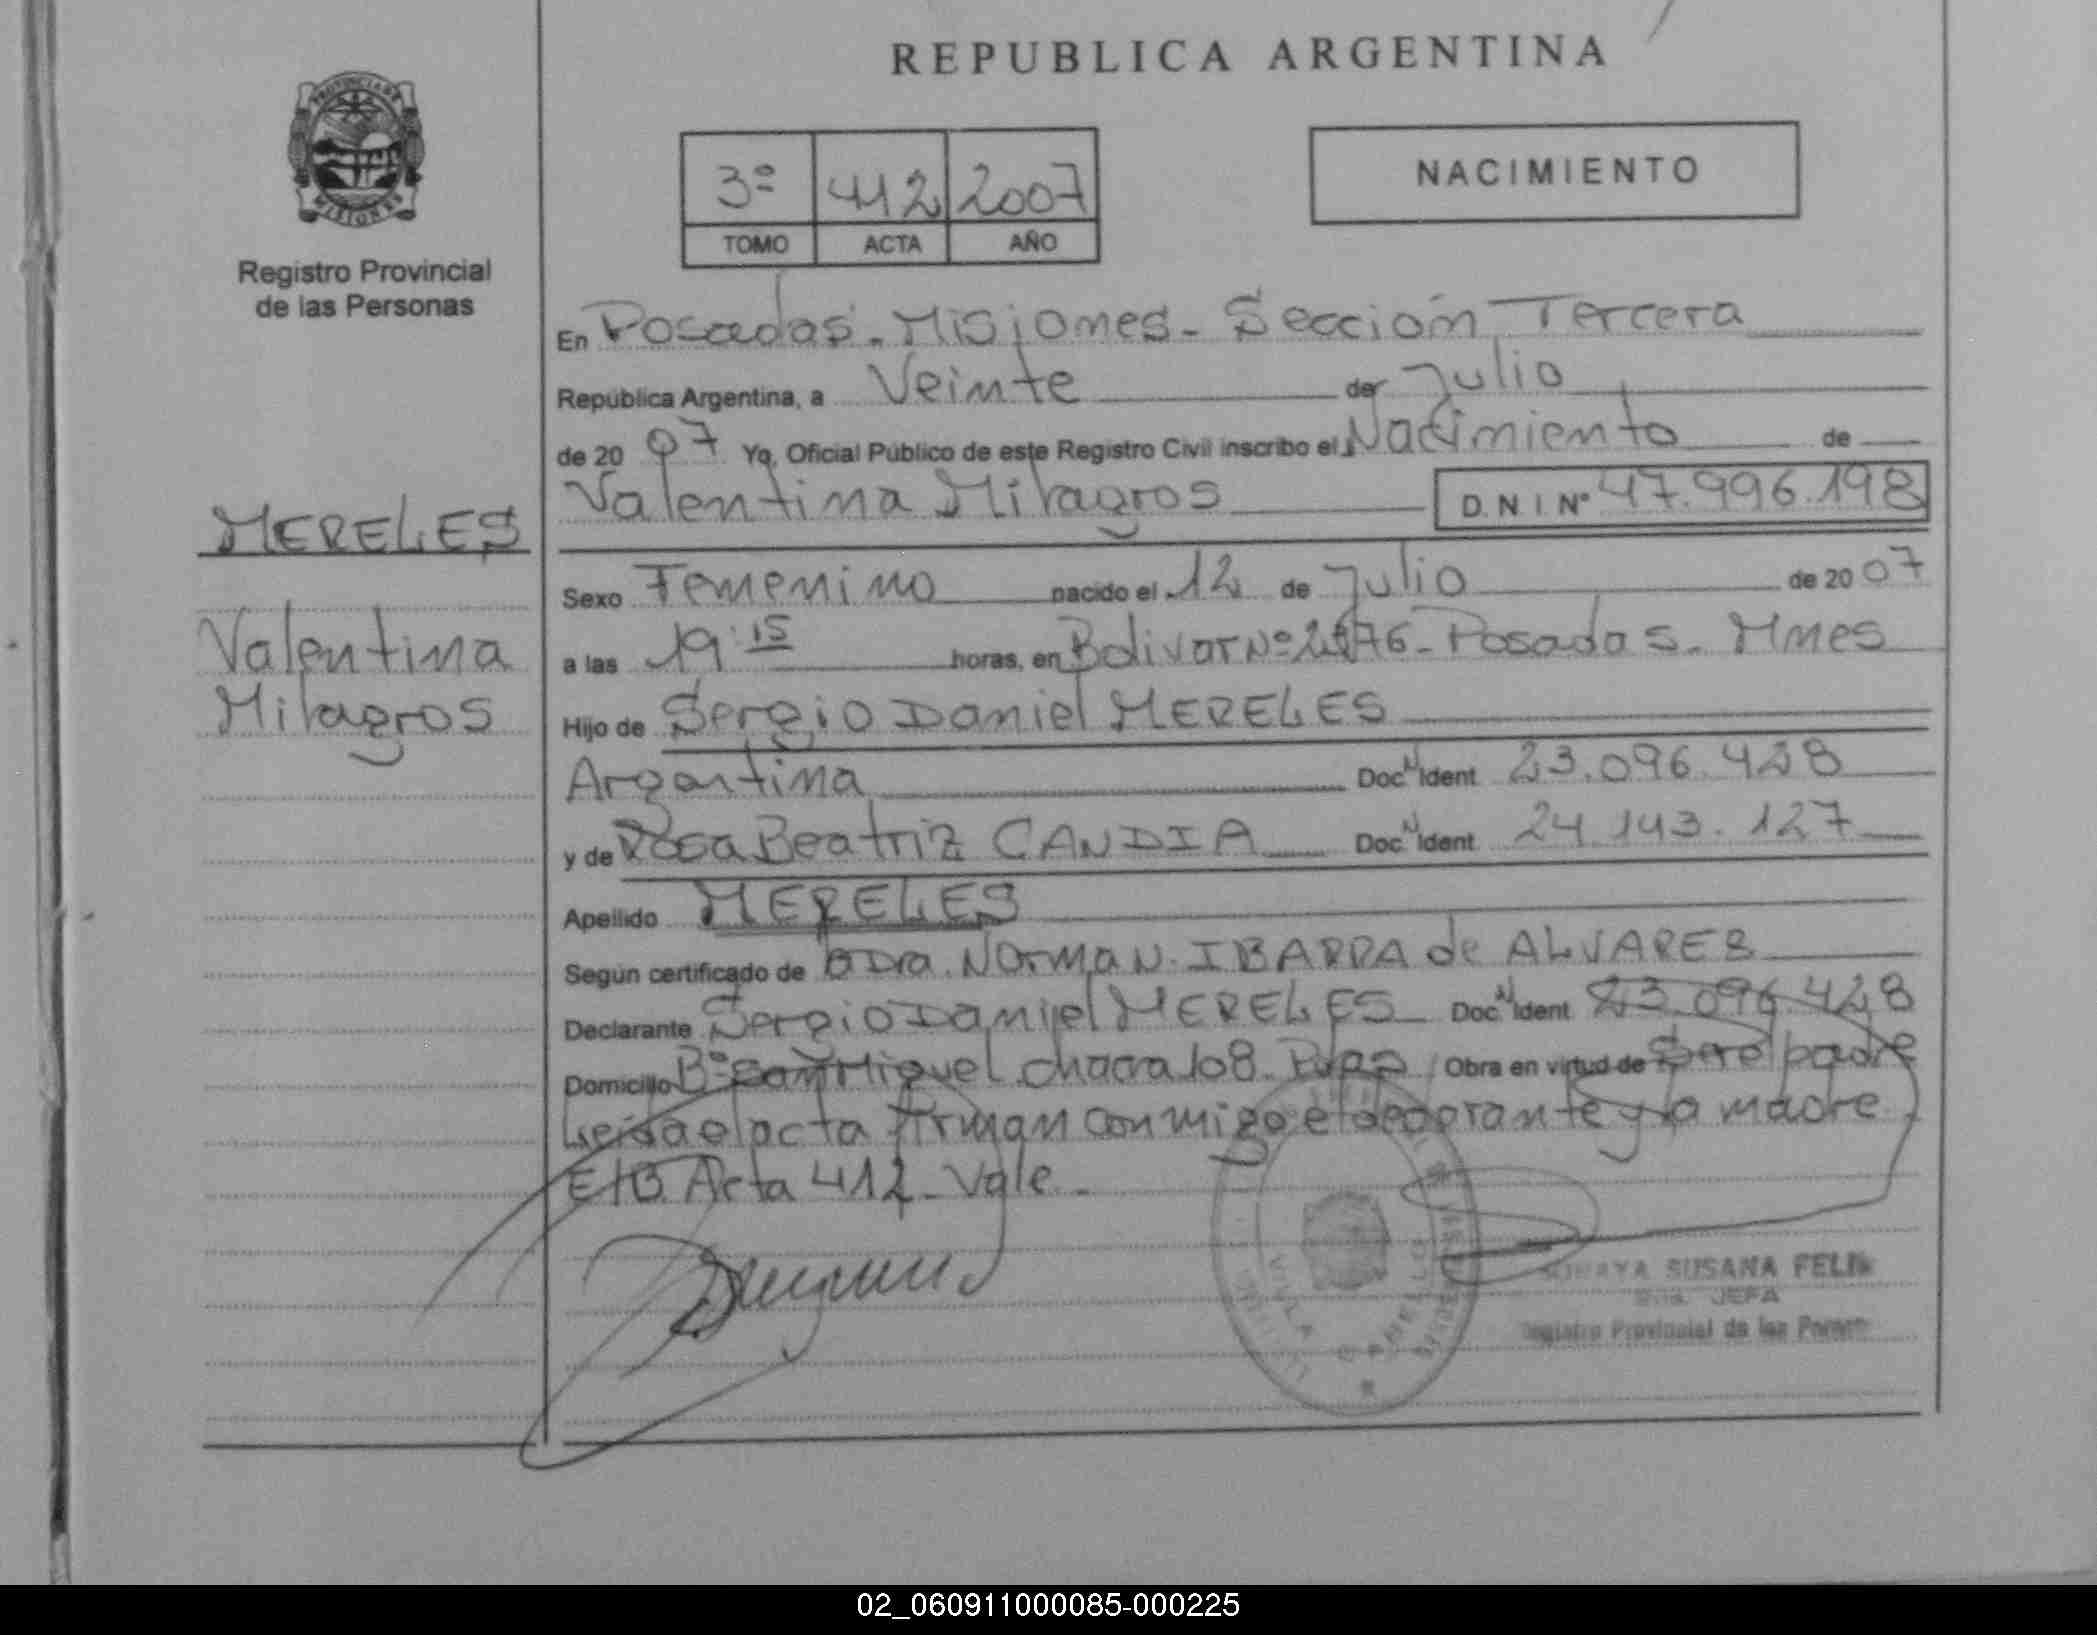 REPUBLICA ARGENTINA
PROVINCIA DE
MISIONES
Registro Provincial
de las Personas
3º 412 2007
TOMO ACTA AÑO
NACIMIENTO
En Posadas. Misiones - Sección Tercera
República Argentina, a Veinte de Julio
de 20 07 Yo, Oficial Público de este Registro Civil inscribo el Nacimiento de
Valentina Milagros D.N.I Nº 47.996.198
MERELES
Valentina
Milagros
Sexo Femenino nacido el 12 de Julio de 20 07
a las 19:15 horas, en Bolivar Nº Posadas. Mnes
Hijo de Sergio Daniel MERELES
Argentina Doc N Ident 23.096.428
y de Rosa Beatriz CANDIA Doc N Ident 24.143.127
Apellido MERELES
Según certificado de Dra. Norma N. IBARRA de ALVAREZ
Declarante Sergio Daniel MERELES Doc N Ident 23.096.428
Domicilio Bº San Miguel chacra 108. Pdas Obra en virtud de Ser el padre
Leida el acta firman conmigo el declarante y la madre
E/B. Acta 412 - Vale -
VILLA CABELLO
SORAYA SUSANA FELIX
JEFA
Registro Provincial de las Personas
02_060911000085-000225